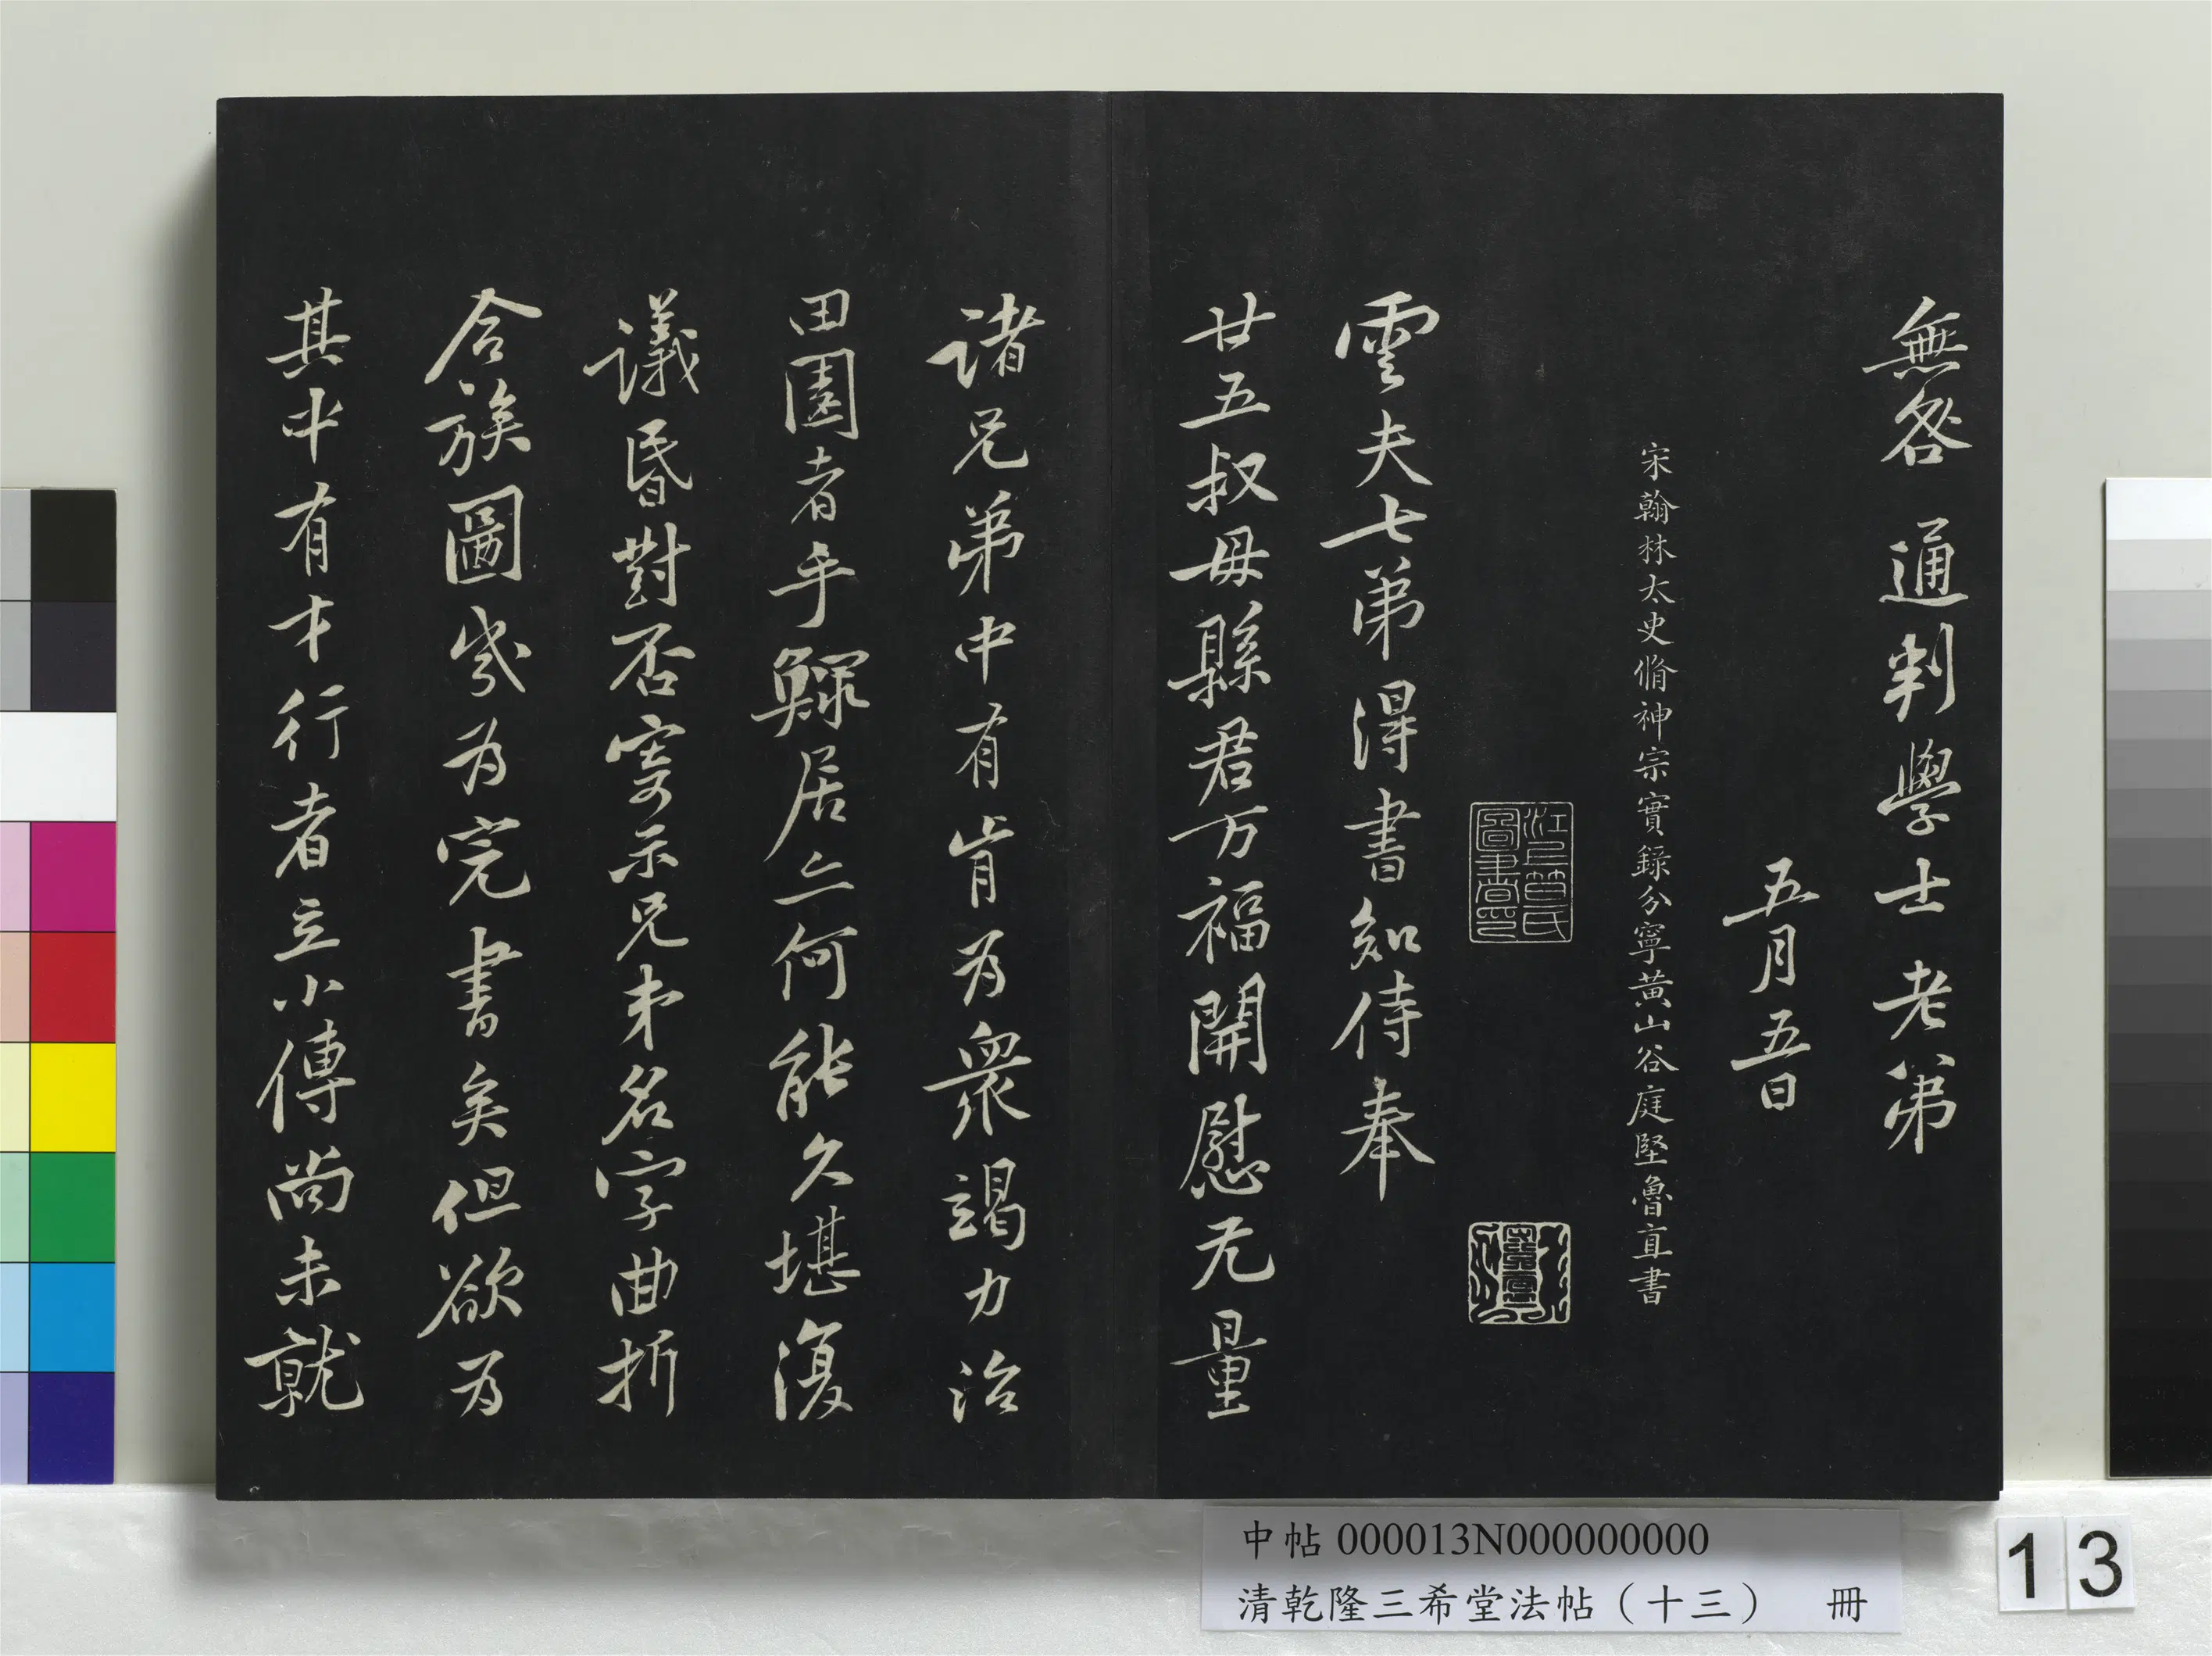 無咎 通判學士老弟
五月五日
宋翰林太史脩神宗實錄分寧黃山谷庭堅魯直書
雲夫七弟得書知侍奉
廿五叔母縣君万福開慰无量
諸兄弟中有肯為衆竭力治
田園者乎鰥居亦何能久堪復
議昏對否寄示兄弟名字曲折
合族圖幾為完書矣但欲為
其中有才行者立小傳尚未就
中帖 000013N000000000
清乾隆三希堂法帖（十三） 冊
13